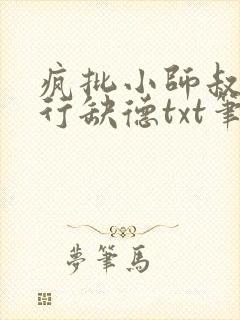 疯批小師叔
行缺德txt筆
夢筆馬